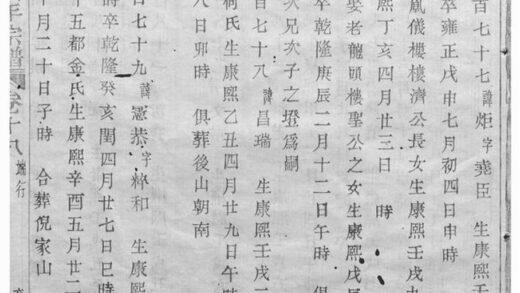 百七十七諱炬字堯臣 生康熙壬
卒雍正戊申七月初四日申時
鳳儀樓樓濟公長女生康熙壬戌九
熙丁亥四月廿三日 時
娶老龍頭樓聖公之女生康熙戊辰
卒乾隆庚辰二月十二日午時 俱
次兄次子之墱爲嗣
百七十八諱昌瑞 生康熙壬戌二
柯氏生康熙乙丑四月廿九日午時
八日卯時 俱葬後山朝南
百七十九諱憲恭字粹和 生康熙
時卒乾隆癸亥閏四月廿七日巳時
十五都金氏生康熙辛酉五月廿二
十月二十日子時 合葬倪家山
宗譜 卷十八 行